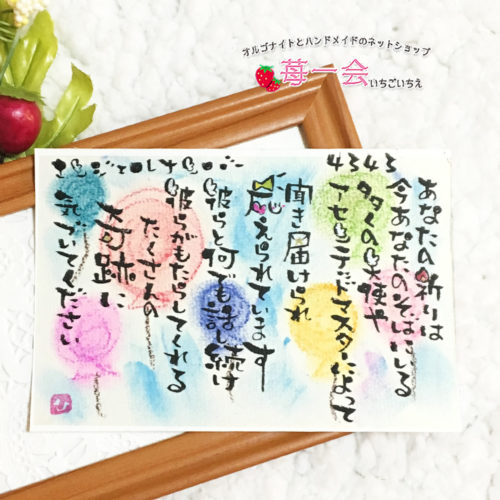 オルゴナイトとハンドメイドのネットショップ
苺一会 いちごいちえ
エンジェルナンバー
4343
あなたの祈りは
今あなたのそばにいる
多くの天使や
アセンデッドマスターによって
聞き届けられ
応えられています
彼らと何でも話し続け
彼らがもたらしてくれる
たくさんの
奇跡に
気づいてください